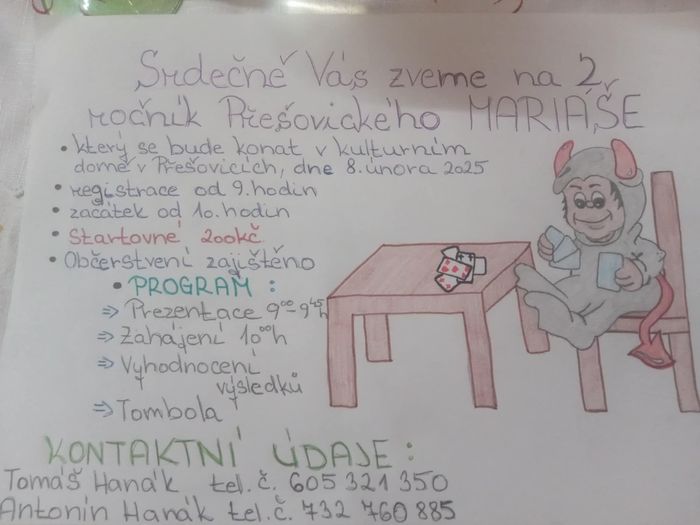 Srdečně Vás zveme na 2.
ročník Přešovického MARIÁŠE
• který se bude konat v kulturním
domě v Přešovicích, dne 8. února 2025
• registrace od 9. hodin
• začátek od 10. hodin
• Startovné 200kč
• Občerstvení zajištěno
• PROGRAM :
⇒ Prezentace 9⁰⁰-9⁴⁵h
⇒ Zahájení 10⁰⁰h
⇒ Vyhodnocení
výsledků
⇒ Tombola
KONTAKTNÍ ÚDAJE :
Tomáš Hanák tel. č. 605 321 350
Antonín Hanák tel. č. 732 760 885